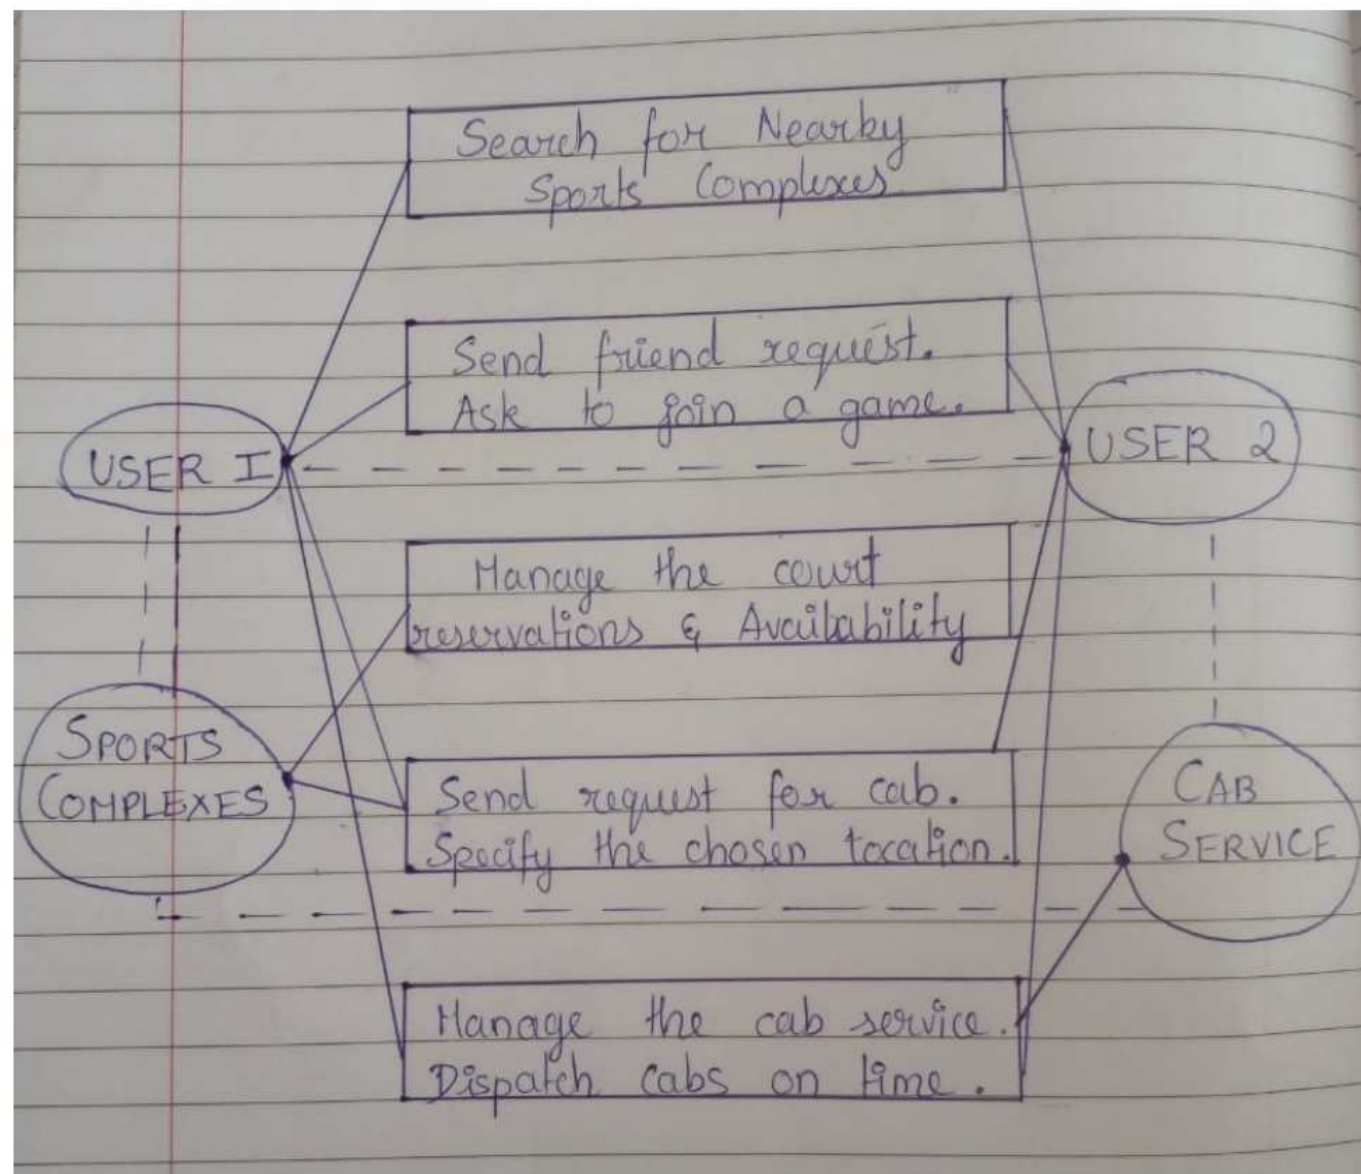 Search for Nearby
Sports Complexes
Send friend request.
Ask to join a game.
USER I
USER 2
Manage the court
reservations & Availability
SPORTS
COMPLEXES
Send request for cab.
Specify the chosen location.
CAB
SERVICE
Manage the cab service.
Dispatch cabs on time.